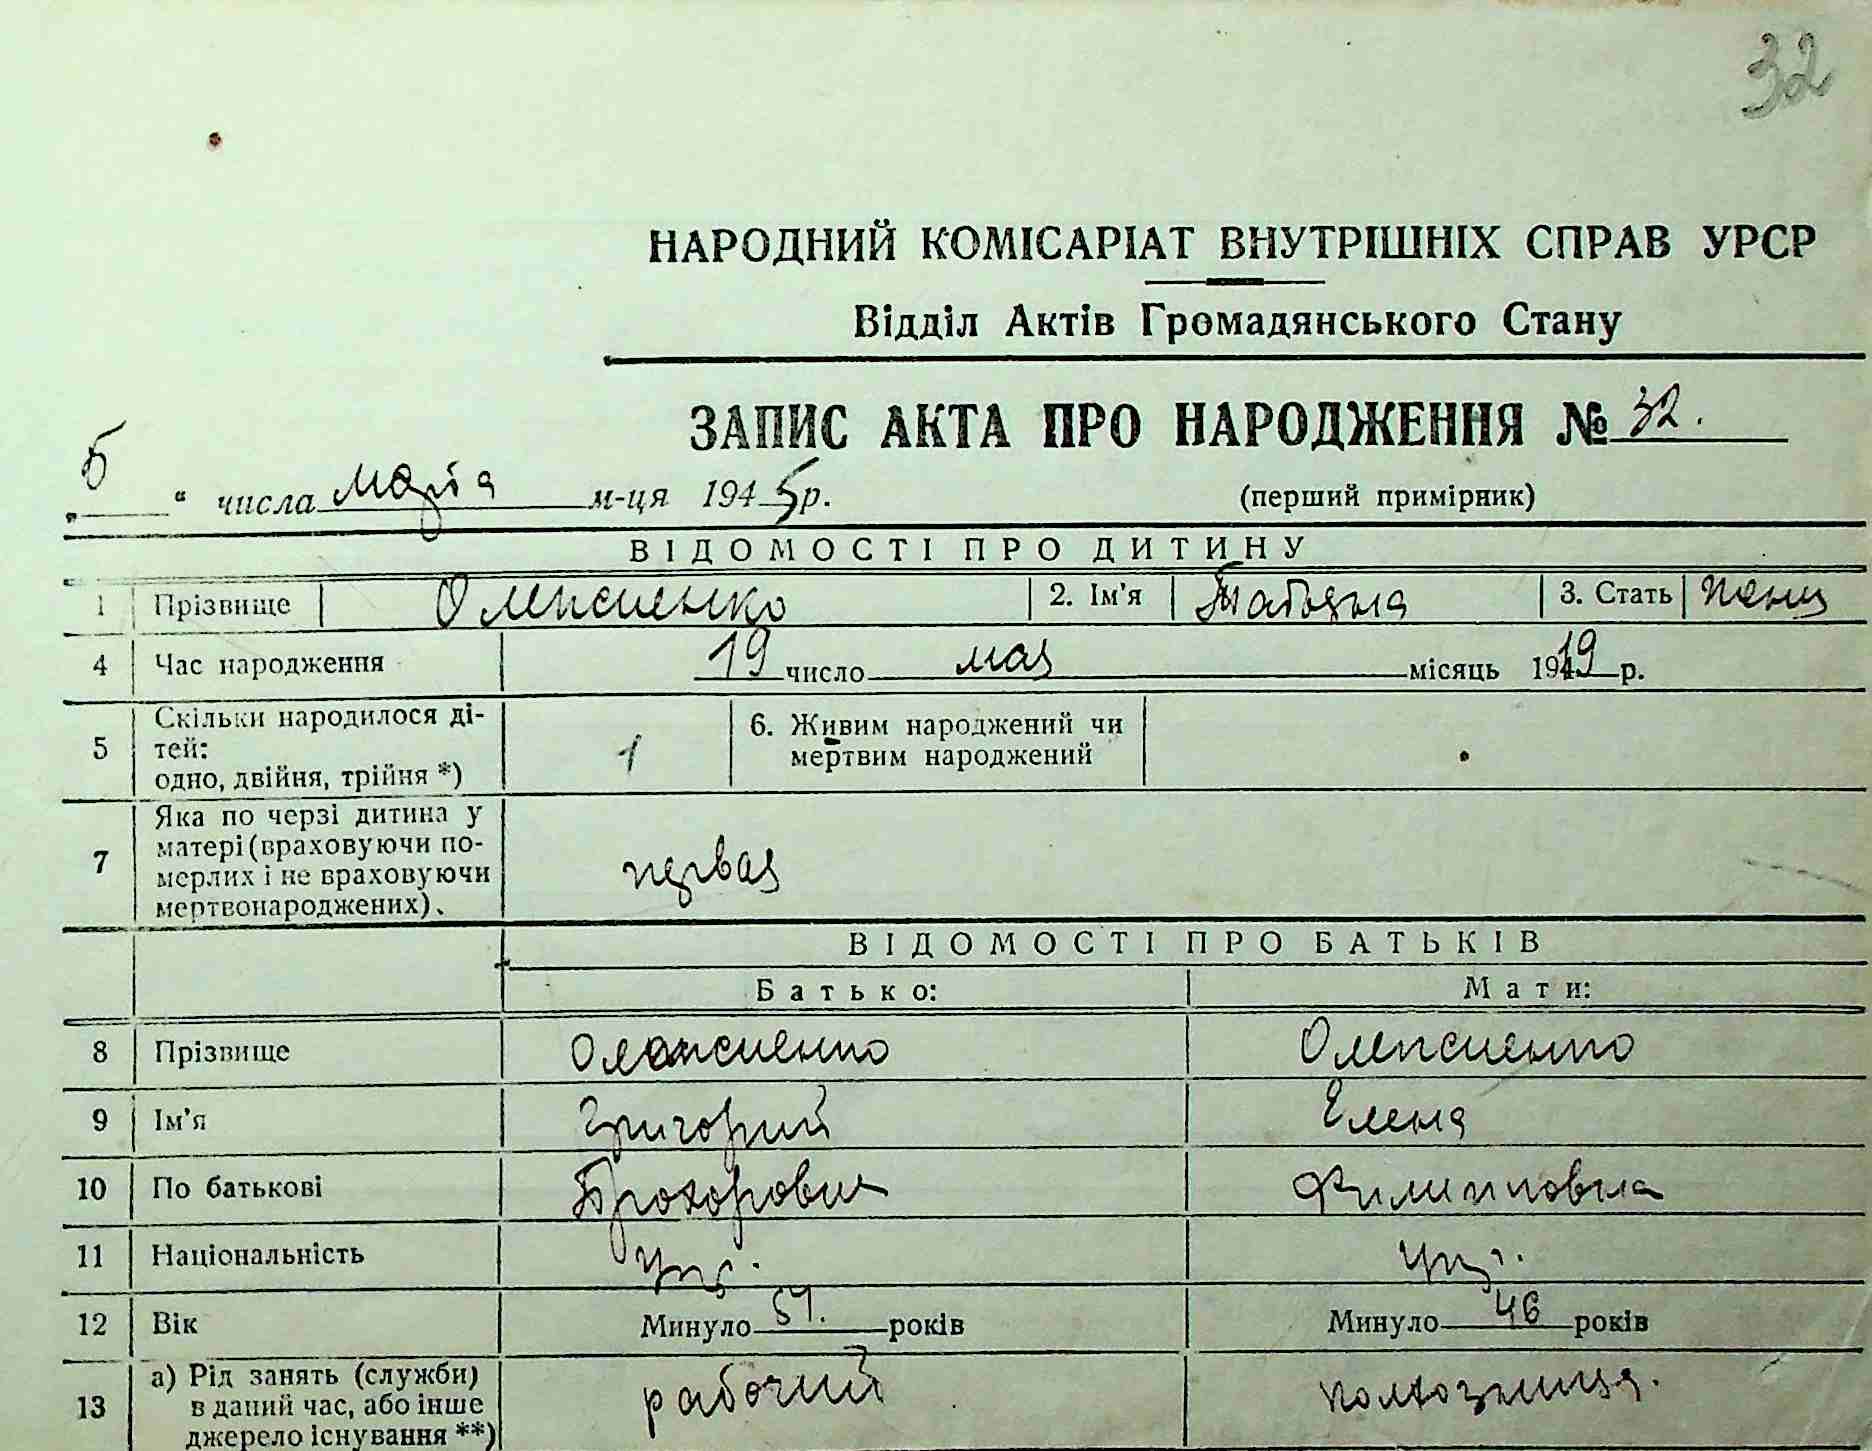 32
НАРОДНИЙ КОМІСАРІАТ ВНУТРІШНІХ СПРАВ УРСР
Відділ Актів Громадянського Стану
ЗАПИС АКТА ПРО НАРОДЖЕННЯ № 32.
„5“ числа марта м-ця 1945 р. (перший примірник)
ВІДОМОСТІ ПРО ДИТИНУ
1 Прізвище Олексиенко 2. Ім'я Татьяна 3. Стать женщ
4 Час народження 19 число мая місяць 1919 р.
5 Скільки народилося ді-
тей:
одно, двійня, трійня *) 1 6. Живим народжений чи
мертвим народжений
7 Яка по черзі дитина у
матері (враховуючи по-
мерлих і не враховуючи
мертвонароджених). первая
ВІДОМОСТІ ПРО БАТЬКІВ
Батько: Мати:
8 Прізвище Олексиенко Олексиенко
9 Ім'я Григорий Елена
10 По батькові Прохорович Филипповна
11 Національність Укр. Укр.
12 Вік Минуло років Минуло 46 років
13 а) Рід занять (служби)
в даний час, або інше
джерело існування **) рабочий колхозница.